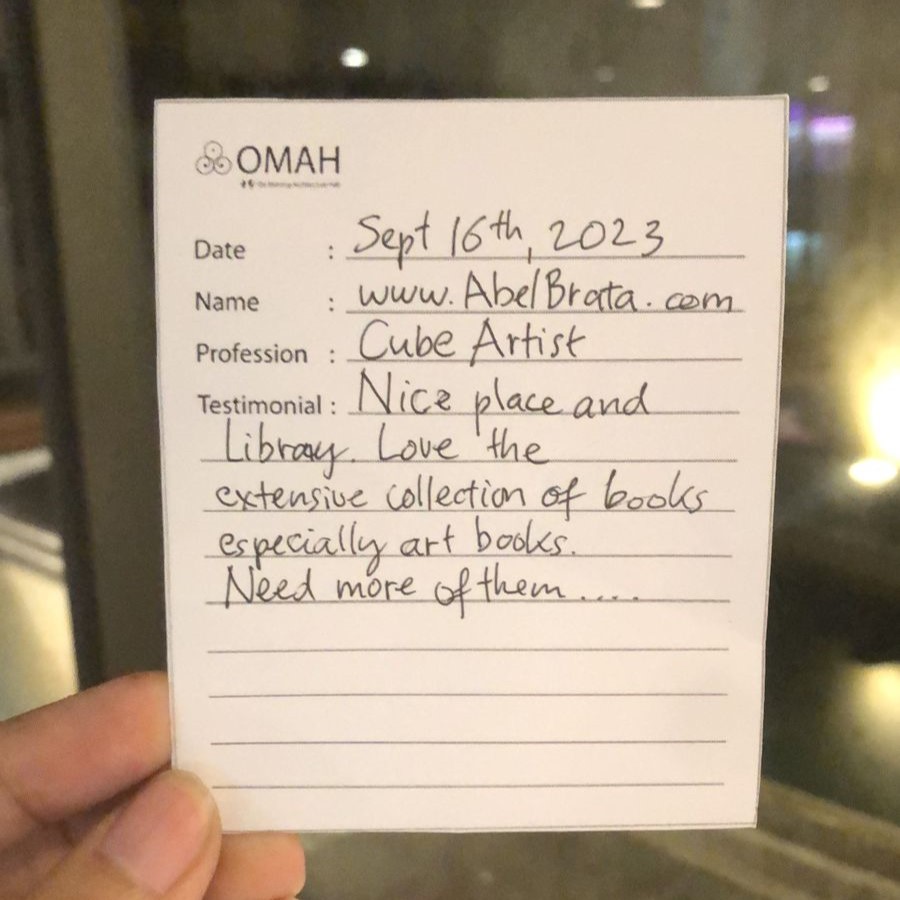 OMAH
Date : Sept 16th, 2023
Name : www.AbelBrata.com
Profession : Cube Artist
Testimonial : Nice place and
Library. Love the
extensive collection of books
especially art books.
Need more of them.....